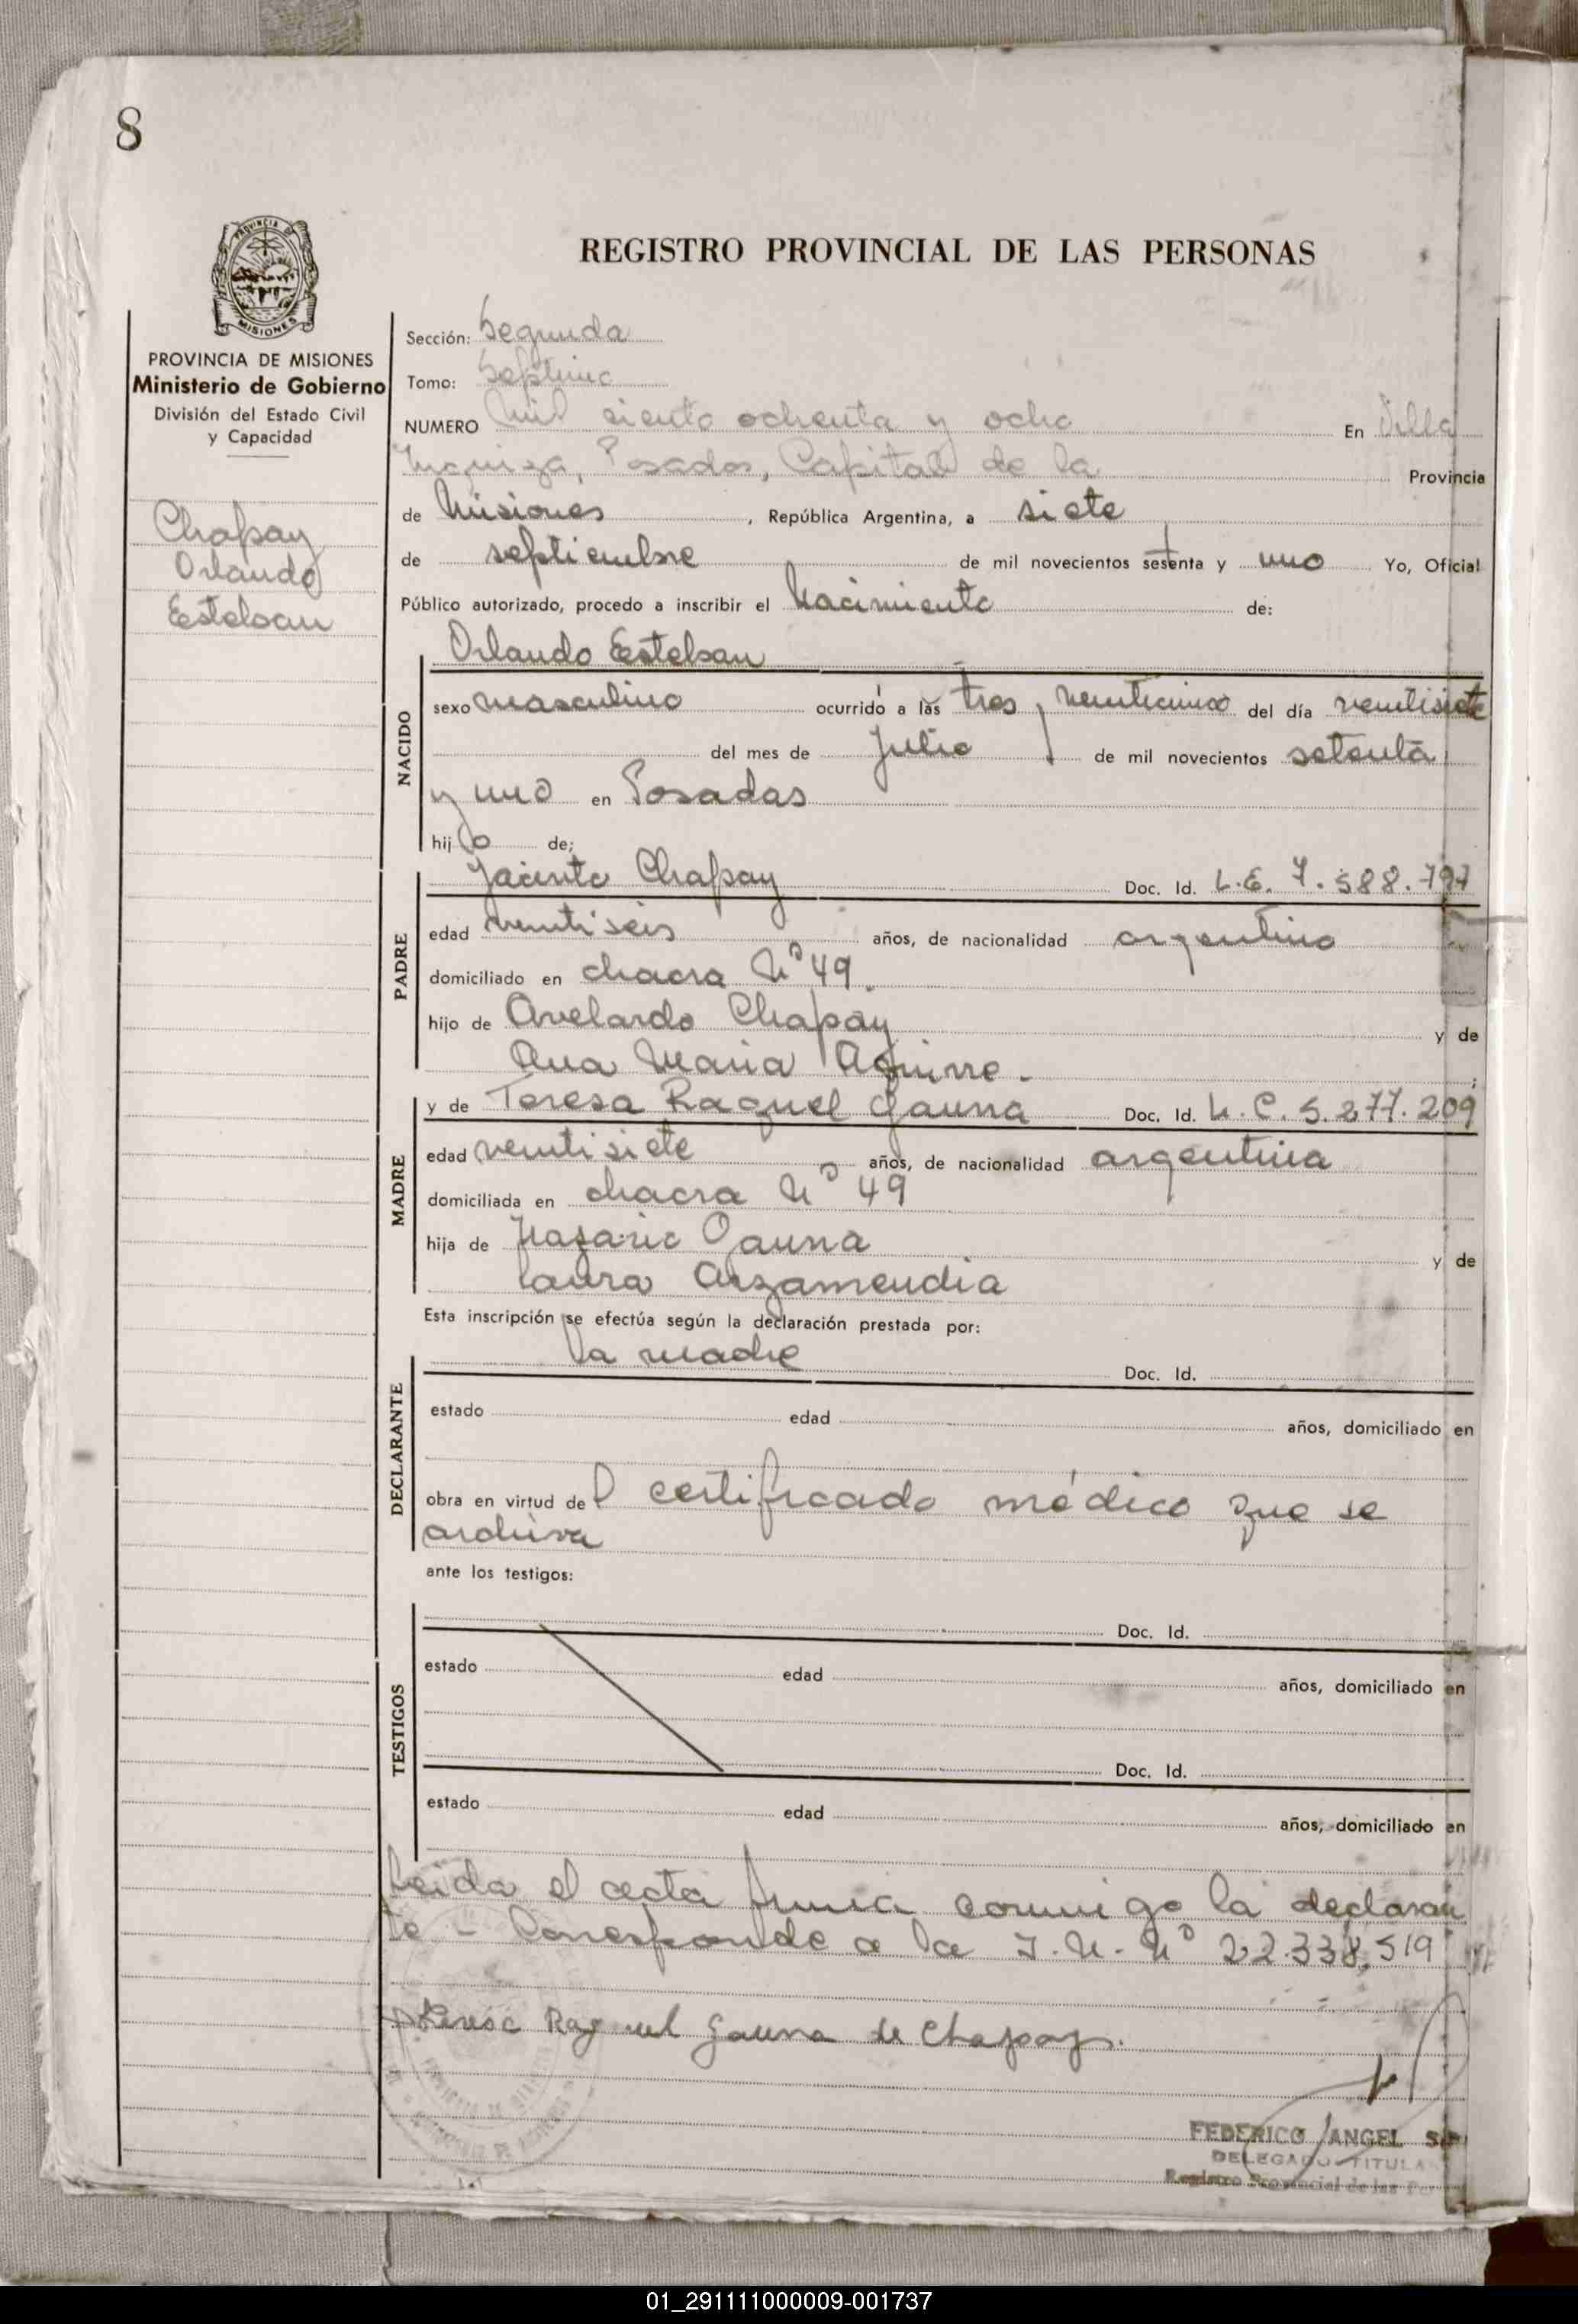 8
PROVINCIA DE
MISIONES
REGISTRO PROVINCIAL DE LAS PERSONAS
PROVINCIA DE MISIONES
Ministerio de Gobierno
División del Estado Civil
y Capacidad
Chapay
Orlando
Esteban
Sección: Segunda
Tomo: Septimo
NUMERO Mil ciento ochenta y ocho En Villa
Urquiza, Posadas, Capital de la Provincia
de Misiones, República Argentina, a siete
de septiembre de mil novecientos setenta y uno Yo, Oficial
Público autorizado, procedo a inscribir el Nacimiento de:
Orlando Esteban
NACIDO
sexo masculino ocurrido a las tres y veinticinco del día veintisiete
del mes de Julio de mil novecientos setenta
y uno en Posadas
hijo de;
PADRE
Jacinto Chapay Doc. Id. L.E. 7.588.797
edad veintiseis años, de nacionalidad argentino
domiciliado en chacra Nº 49.
hijo de Avelardo Chapay y de
Ana Maria Aguirre.- ;
MADRE
y de Teresa Raquel Gauna Doc. Id. L.C. 5.277.209
edad veintisiete años, de nacionalidad argentina
domiciliada en chacra Nº 49
hija de Nazario Gauna y de
Laura Arzamendia
Esta inscripción se efectúa según la declaración prestada por:
DECLARANTE
la madre Doc. Id.
estado edad años, domiciliado en
obra en virtud del certificado médico que se
archiva
ante los testigos:
TESTIGOS
Doc. Id.
estado edad años, domiciliado en
Doc. Id.
estado edad años, domiciliado en
Leida el acta firma conmigo la declaran
te - Corresponde a la I.N. Nº 22.338.519
Teresa Raquel Gauna de Chapay.
FEDERICO ANGEL
DELEGADO TITULA
Registro Provincial de las Per
01_291111000009-001737